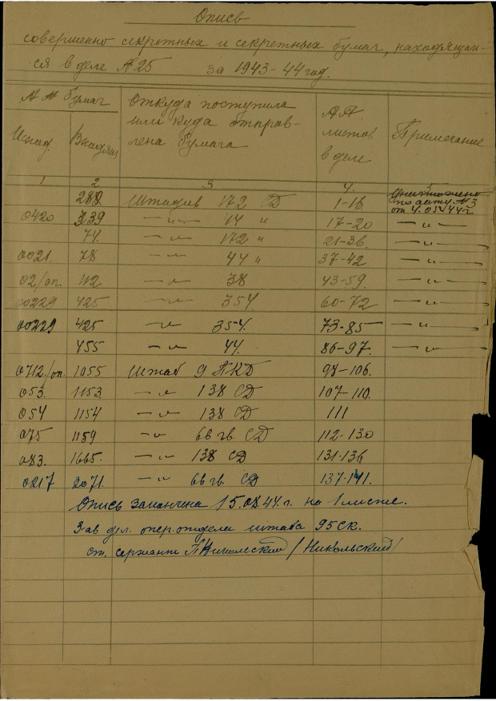 Опись
совершенно секретных и секретных бумаг, находящих-
ся в деле №25 за 1943-44 год.
№ № бумаг Откуда поступила №№ Примечание
Исход. Входящ. или куда отправ- листов
лена бумага в деле
1 2 3 4.
288 Штадив 172 СД 1-16 Уничтожено по акту №3
0420 339 —„— 14 „ 17-20 —„—
74 —„— 172 „ 21-36 —„—
0021 78 —„— 44 „ 37-42 —„—
02/оп. 112 —„— 38 43-59. —„—
00229 425 —„— 354 60-72 —„—
00229 425 —„— 354. 73-85 —„—
455 —„— 44. 86-97. —„—
0712/оп 1055 Штаб 9 ПКД 98-106.
053. 1153 —„— 138 СД 107-110.
054 1154 —„— 138 СД 111
075 1159 —„— 66 гв СД 112-130
083. 1665. —„— 138 СД 131-136
0217 2071 —„— 66 гв СД 137-141.
Опись закончена 15.08.44.г. на 1 листе.
Зав дел. оперотдела штаба 95 ск.
ст. сержант /Никольский/